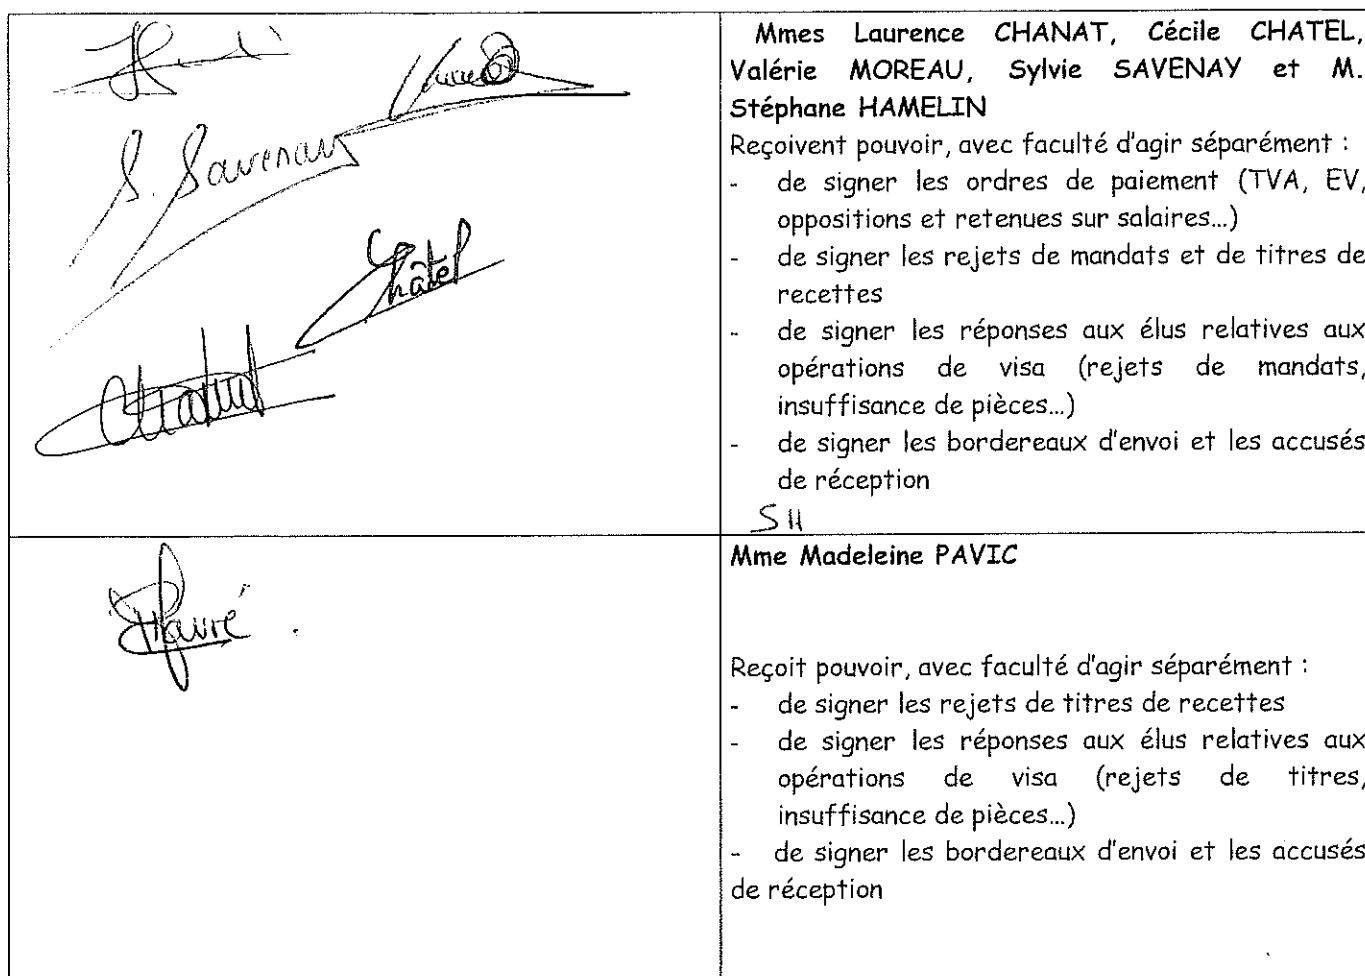 S. Savenay
Châtel
Chanat
Mmes Laurence CHANAT, Cécile CHATEL,
Valérie MOREAU, Sylvie SAVENAY et M.
Stéphane HAMELIN
Reçoivent pouvoir, avec faculté d'agir séparément :
- de signer les ordres de paiement (TVA, EV,
oppositions et retenues sur salaires...)
- de signer les rejets de mandats et de titres de
recettes
- de signer les réponses aux élus relatives aux
opérations de visa (rejets de mandats,
insuffisance de pièces...)
- de signer les bordereaux d'envoi et les accusés
de réception
SH
Mme Madeleine PAVIC
Reçoit pouvoir, avec faculté d'agir séparément :
- de signer les rejets de titres de recettes
- de signer les réponses aux élus relatives aux
opérations de visa (rejets de titres,
insuffisance de pièces...)
- de signer les bordereaux d'envoi et les accusés
de réception